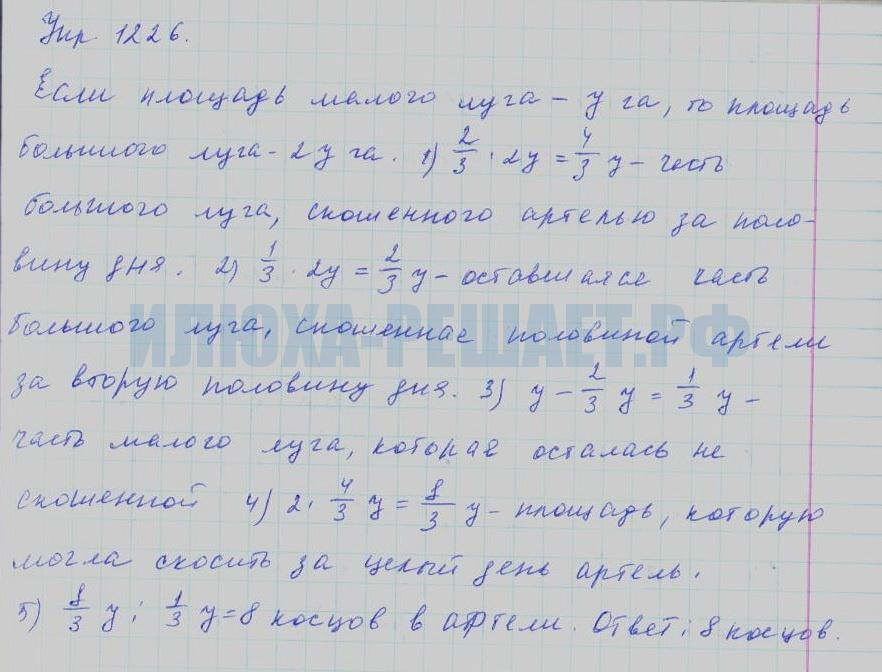 Упр. 1226.
Если площадь малого луга – у га, то площадь
большого луга - 2у га. 1) 2/3 · 2у = 4/3 у – часть
большого луга, скошенного артелью за поло-
вину дня. 2) 1/3 · 2у = 2/3 у – оставшаяся часть
большого луга, скошенная половиной артели
за вторую половину дня. 3) у – 2/3 у = 1/3 у –
часть малого луга, которая осталась не
скошенной 4) 2 · 4/3 у = 8/3 у – площадь, которую
могла скосить за целый день артель.
5) 8/3 у : 1/3 у = 8 косцов в артели. Ответ: 8 косцов.
ИЛЮХА-РЕШАЕТ.РФ